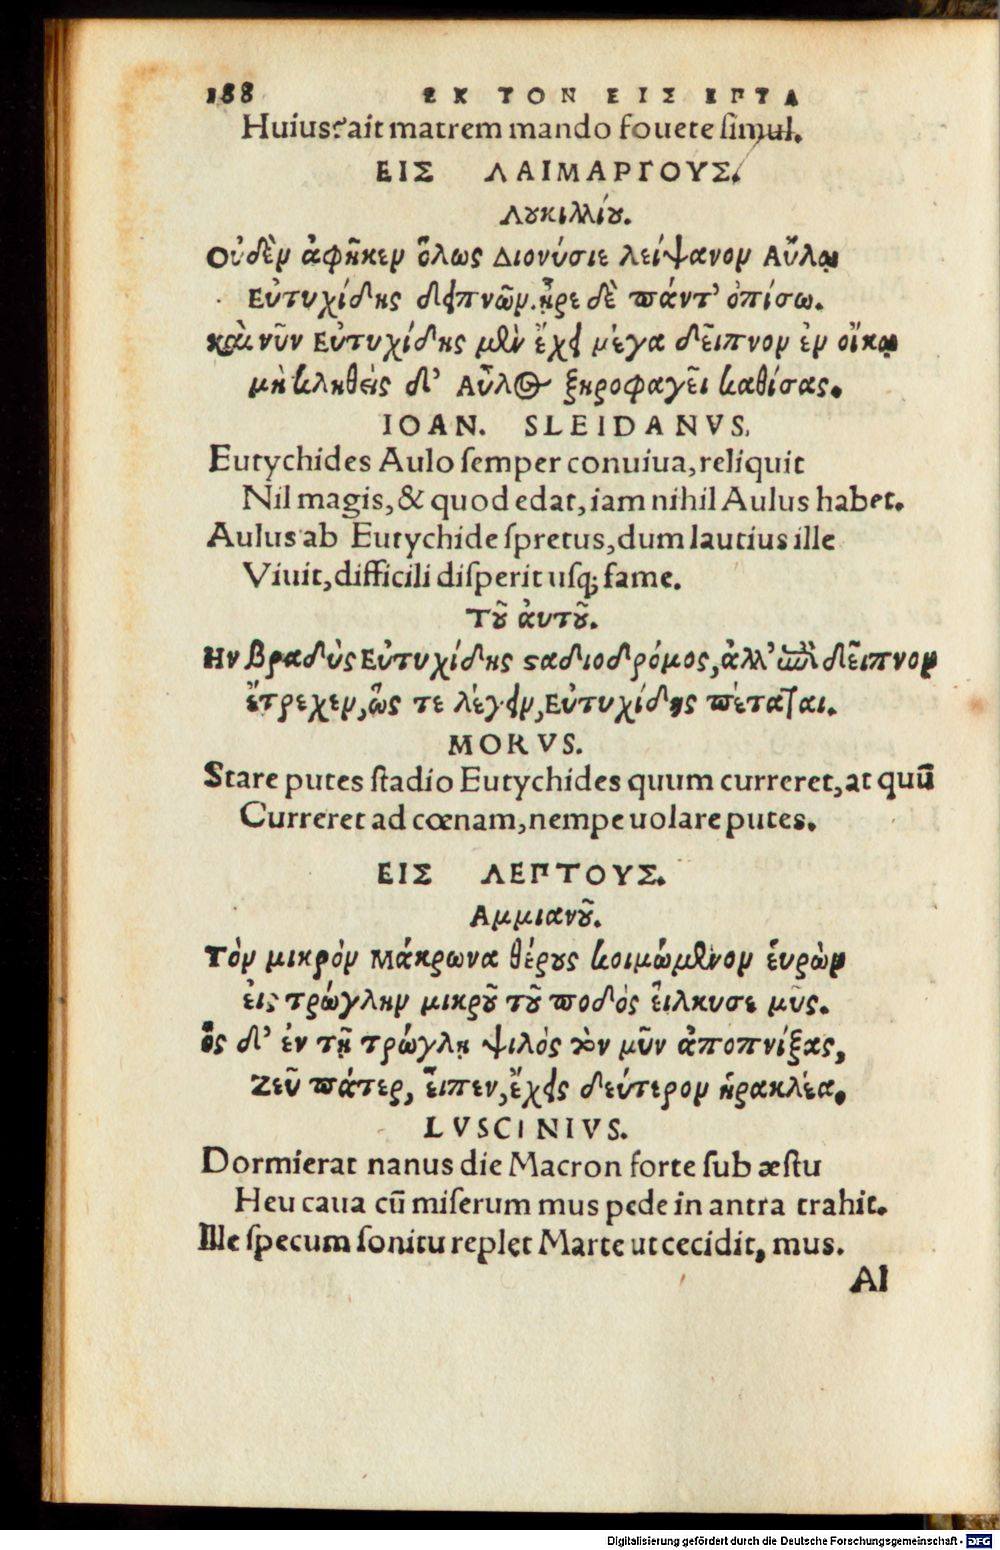 188 ΕΚ ΤΟΝ ΕΙΣ ΕΠΤΑ
Huius? ait matrem mando fouete simul.
ΕΙΣ ΛΑΙΜΑΡΓΟΥΣ.
Λουκιλλίου.
Οὐδὲν ἀφῆκεν ὅλως Διονύσιε λείψανον Αὔλῳ
Εὐτυχίδης δειπνῶν. ἦρε δὲ πάντ' ὀπίσω.
καὶ νῦν Εὐτυχίδης μὲν ἔχει μέγα δεῖπνον ἐν οἴκῳ
μὴ κληθεὶς δ' Αὖλος ξηροφαγεῖ καθίσας.
IOAN. SLEIDANVS.
Eutychides Aulo semper conuiua, reliquit
Nil magis, & quod edat, iam nihil Aulus habet.
Aulus ab Eutychide spretus, dum lautius ille
Viuit, difficili disperit usq; fame.
Τοῦ ἀυτοῦ.
Ην βραδὺς Εὐτυχίδης σταδιοδρόμος, ἀλλ' ἐπὶ δεῖπνον
ἔτρεχεν, ὥς τε λέγειν, Εὐτυχίδης πέταται.
MORVS.
Stare putes stadio Eutychides quum curreret, at quū
Curreret ad cœnam, nempe uolare putes.
ΕΙΣ ΛΕΠΤΟΥΣ.
Αμμιανοῦ.
Τὸν μικρὸν Μάκρωνα θέρους κοιμώμενον ἑυρὼν
εἰς τρώγλην μικροῦ τοῦ ποδὸς εἵλκυσε μῦς.
ὃς δ' ἐν τῇ τρώγλῃ ψιλὸς τὸν μῦν ἀποπνίξας,
Ζεῦ πάτερ, εἶπεν, ἔχεις δεύτερον ἡρακλέα.
LVSCINIVS.
Dormierat nanus die Macron forte sub æstu
Heu caua cū miserum mus pede in antra trahit.
Ille specum sonitu replet Marte ut cecidit, mus.
Al
Digitalisierung gefördert durch die Deutsche Forschungsgemeinschaft - DFG